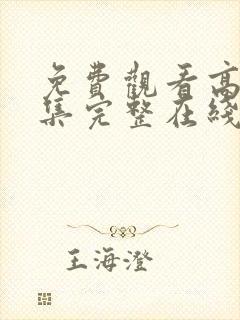 免費觀看高
集完整在綫
王海澄